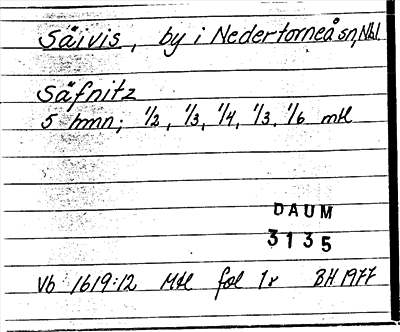 Säivis, by i Nedertorneå sn, Nbl.
Säfnitz
5 hmn; 1/2, 1/3, 1/4, 1/3, 1/6 mtl
DAUM
3135
Vb 1619:12 Mtl fol 1r BH 1977